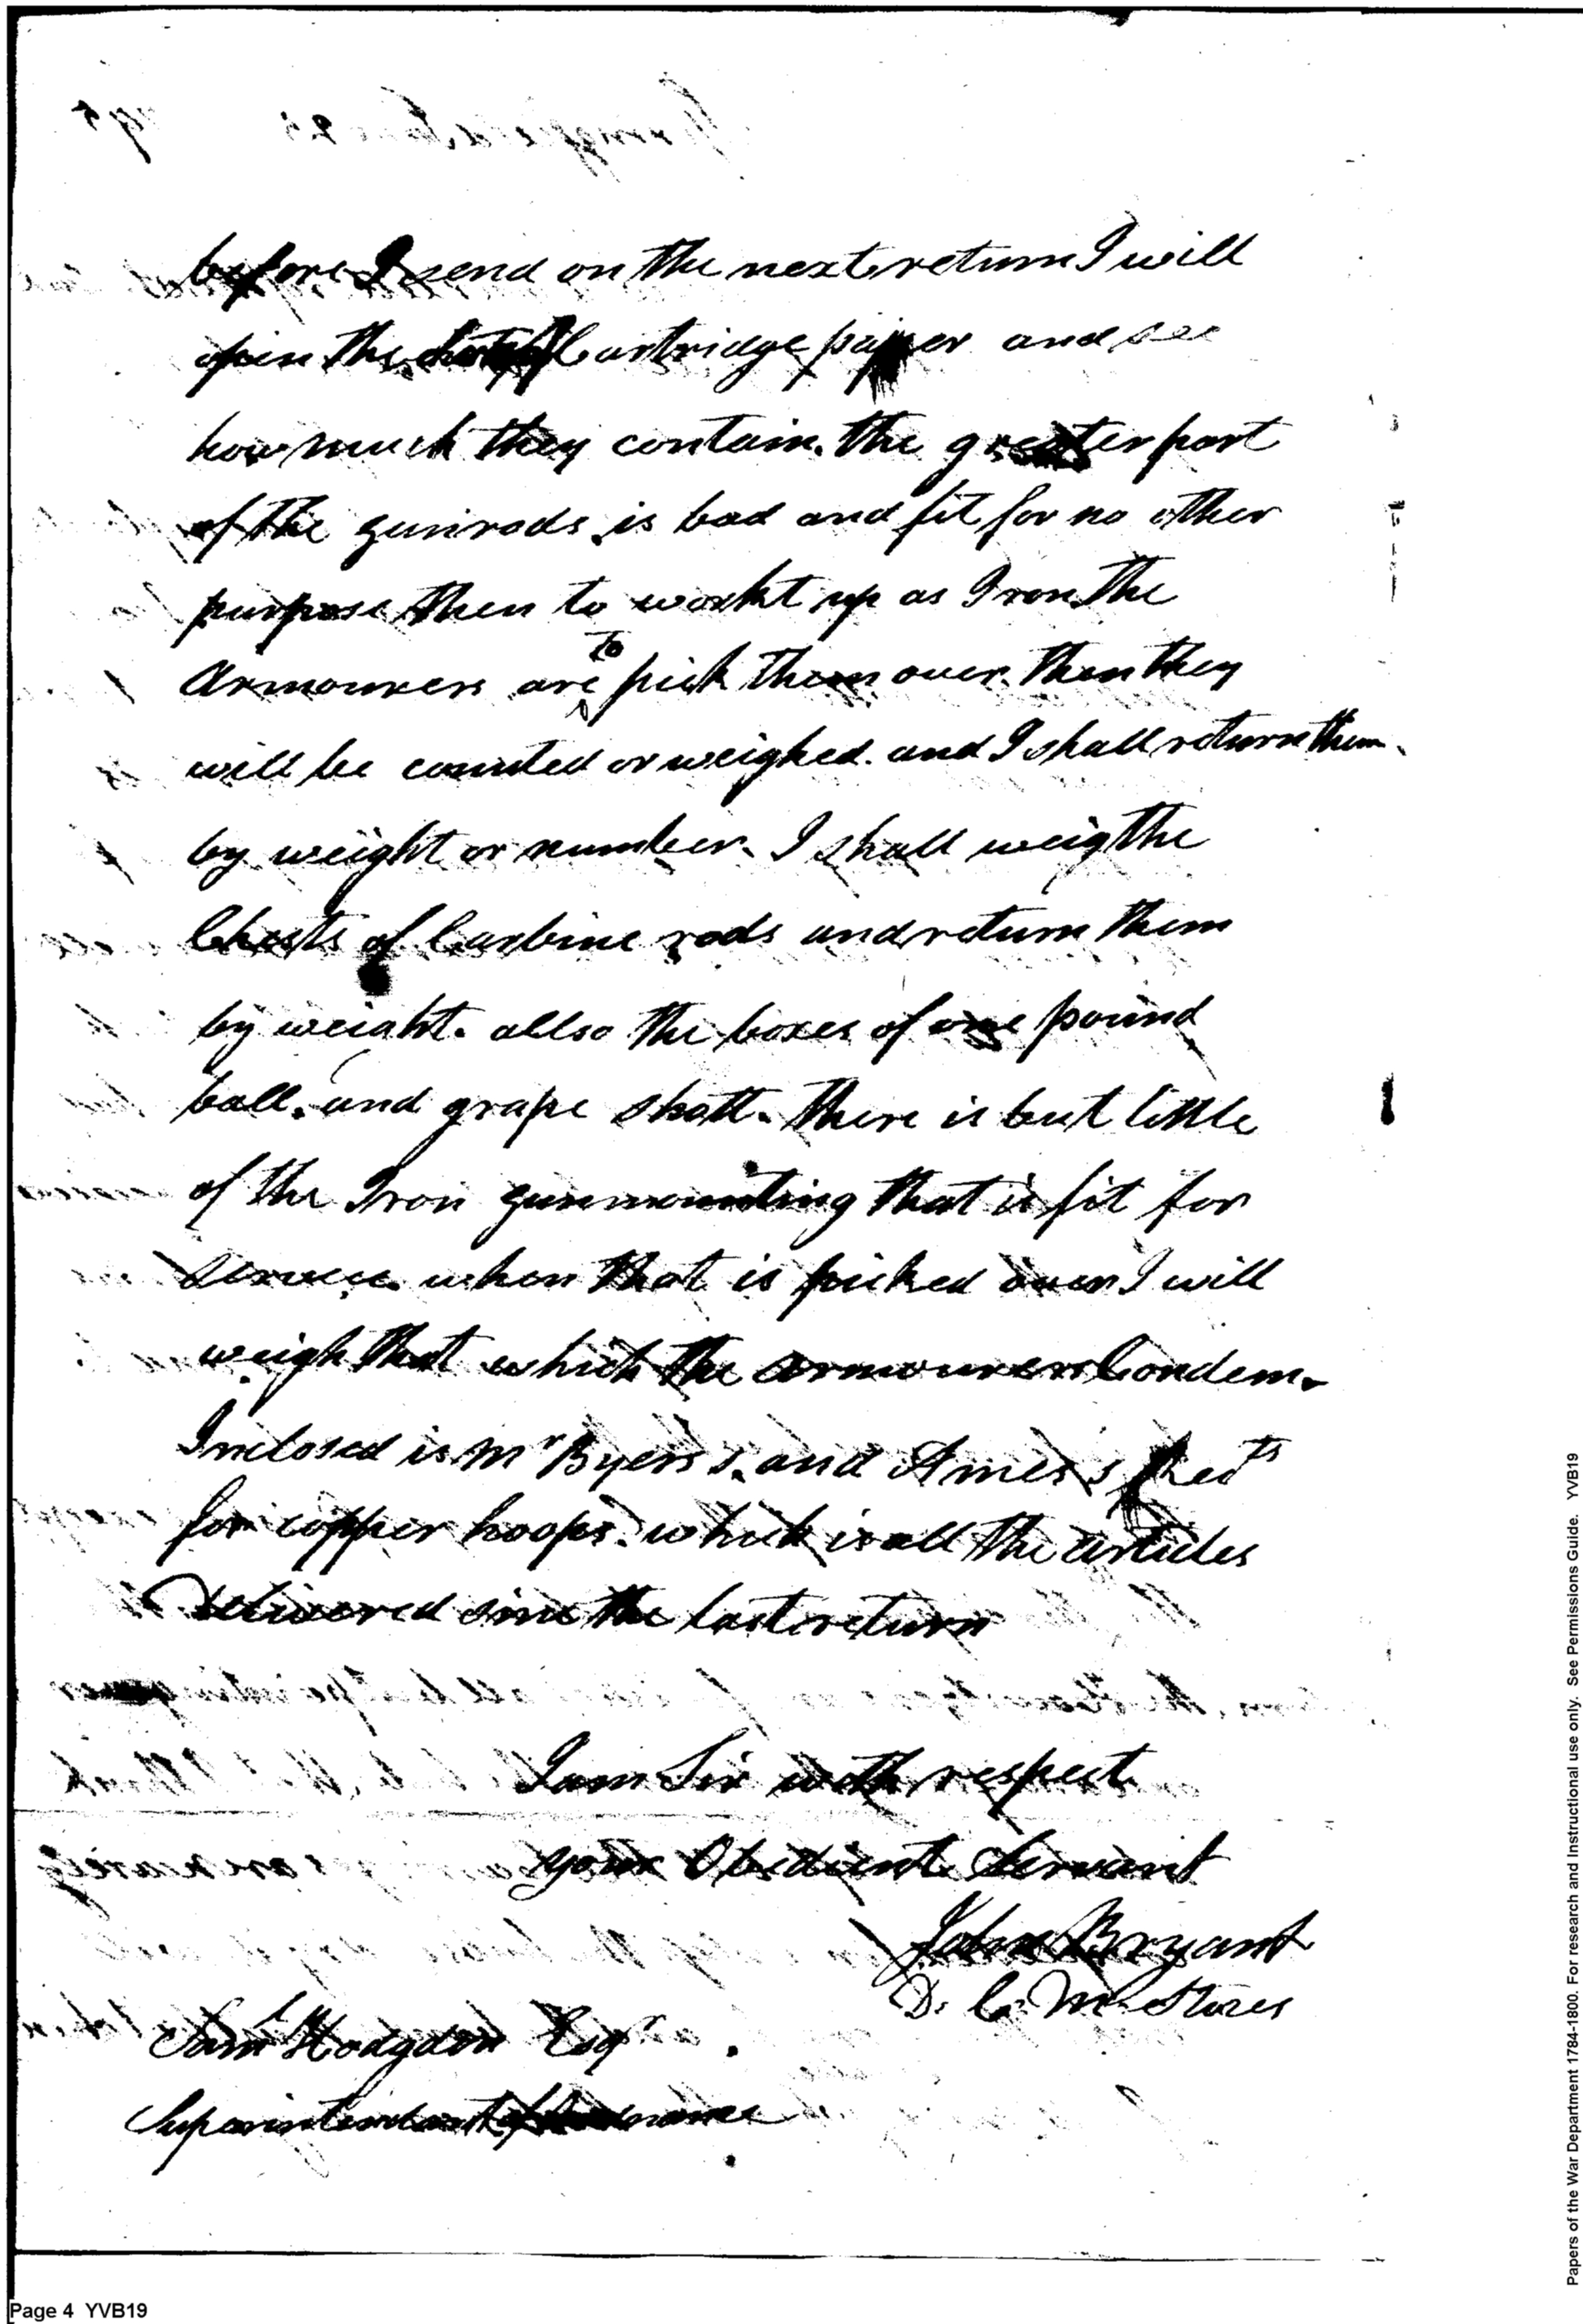 before I send on the next return I will
open the chests of Cartridge paper and see
how much they contain. the greater part
of the gunrods is bad and fit for no other
purpose then to workt up as Iron. The
Armourers are to pick them over. then they
will be counted or weighed. and I shall return them
by weight or number. I shall weig the
Chests of Carbine rods and return them
by weight. allso the boxes of one pound
ball. and grape shott. there is but little
of the Iron gunmounting that is fit for
service. when that is picked over I will
weigh that which the armourers Condem.
Inclosed is Mr Byers's. and Ames's Rects
for copper hoops. which is all the articles
Delivered since the last return
I am Sir with respect
your Obedient Servant
John Bryant
D. C. M. Stores
Saml Hodgdon Esqr
Superintendant of Ordnance
Page 4 YVB19
Papers of the War Department 1784-1800. For research and Instructional use only. See Permissions Guide. YVB19